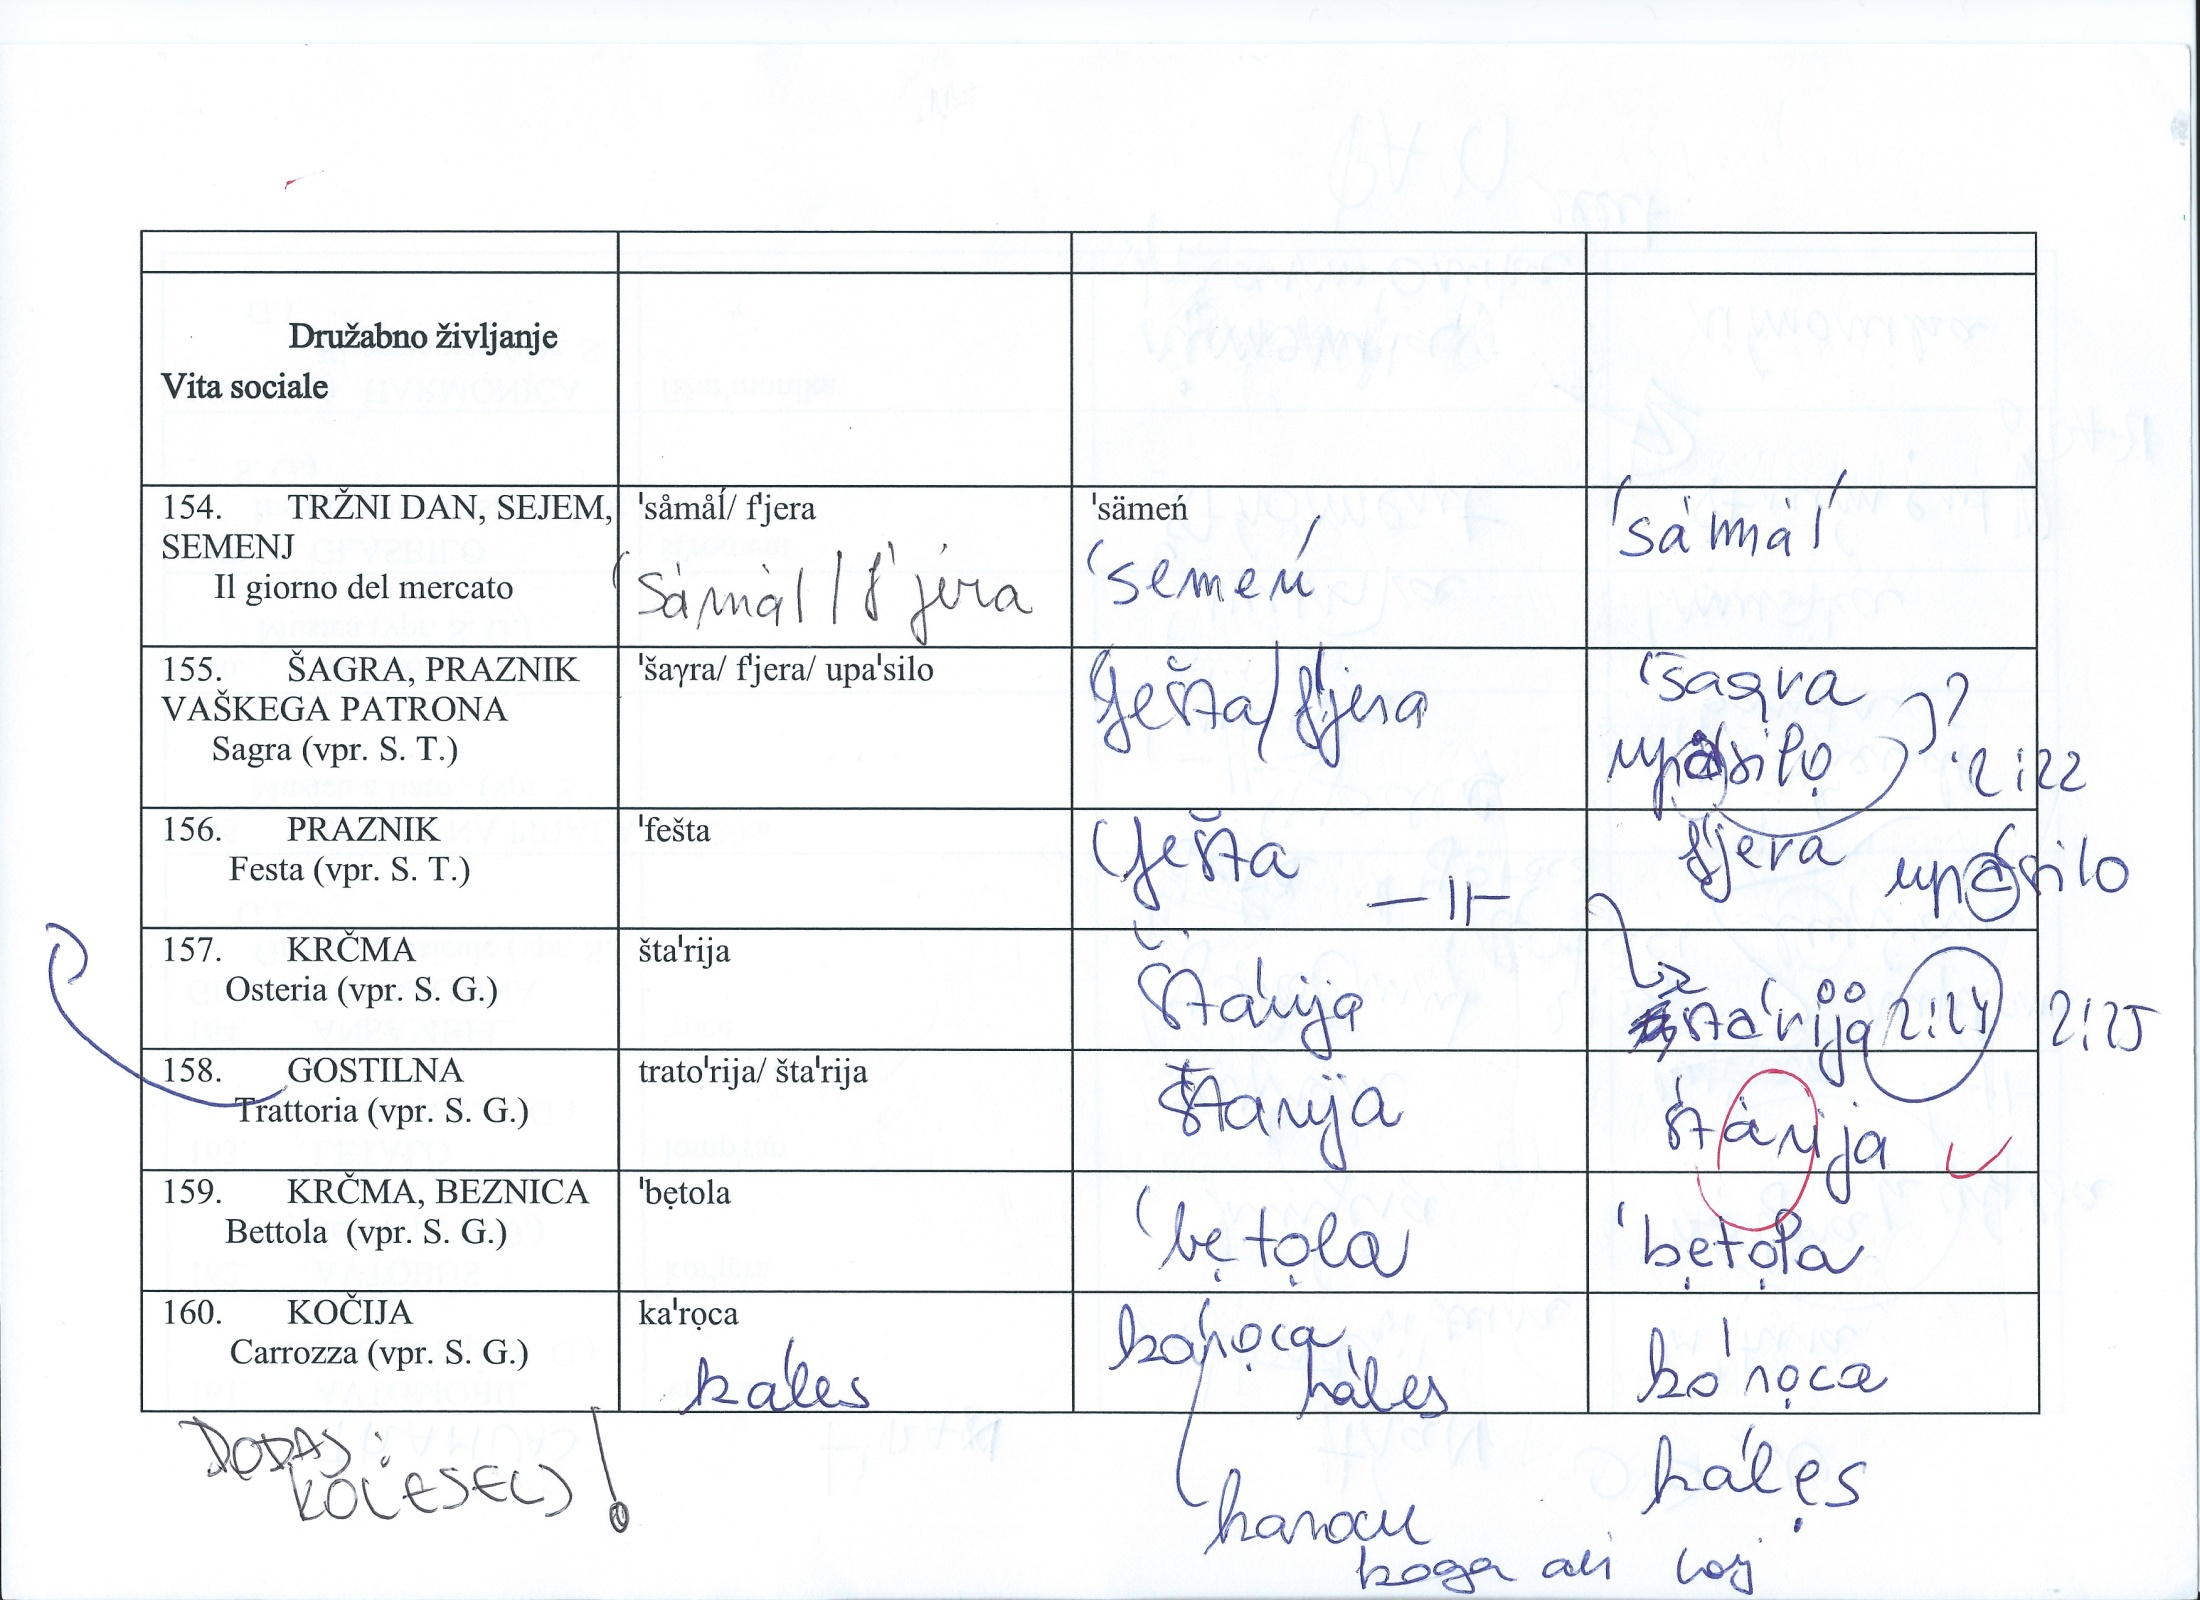 Družabno življanje
Vita sociale
154. TRŽNI DAN, SEJEM, SEMENJ
Il giorno del mercato
ˈsåmåĺ/ fˈjera
ˈsämeń
ˈsȧmȧĺ
ˈsȧmȧl / fˈjera
ˈsemeń
155. ŠAGRA, PRAZNIK VAŠKEGA PATRONA
Sagra (vpr. S. T.)
ˈšaγra/ fˈjera/ upaˈsilo
ˈfešta/ fˈjera
ˈšaγra
upaˈsilọ ? 2:22
156. PRAZNIK
Festa (vpr. S. T.)
ˈfešta
ˈfešta
-||-
fˈjera
upaˈsilo
157. KRČMA
Osteria (vpr. S. G.)
štaˈrija
štaˈrija
štaˈrija 2:24 2:25
158. GOSTILNA
Trattoria (vpr. S. G.)
tratoˈrija/ štaˈrija
štarija
štȧrija
159. KRČMA, BEZNICA
Bettola (vpr. S. G.)
ˈbẹtola
ˈbẹtọla
ˈbẹtọla
160. KOČIJA
Carrozza (vpr. S. G.)
kaˈrọca
kaˈrọca
koˈrọca
kaˈles
kaˈles
kaˈlẹs
DODAJ:
KOLESELJ !
koga ali